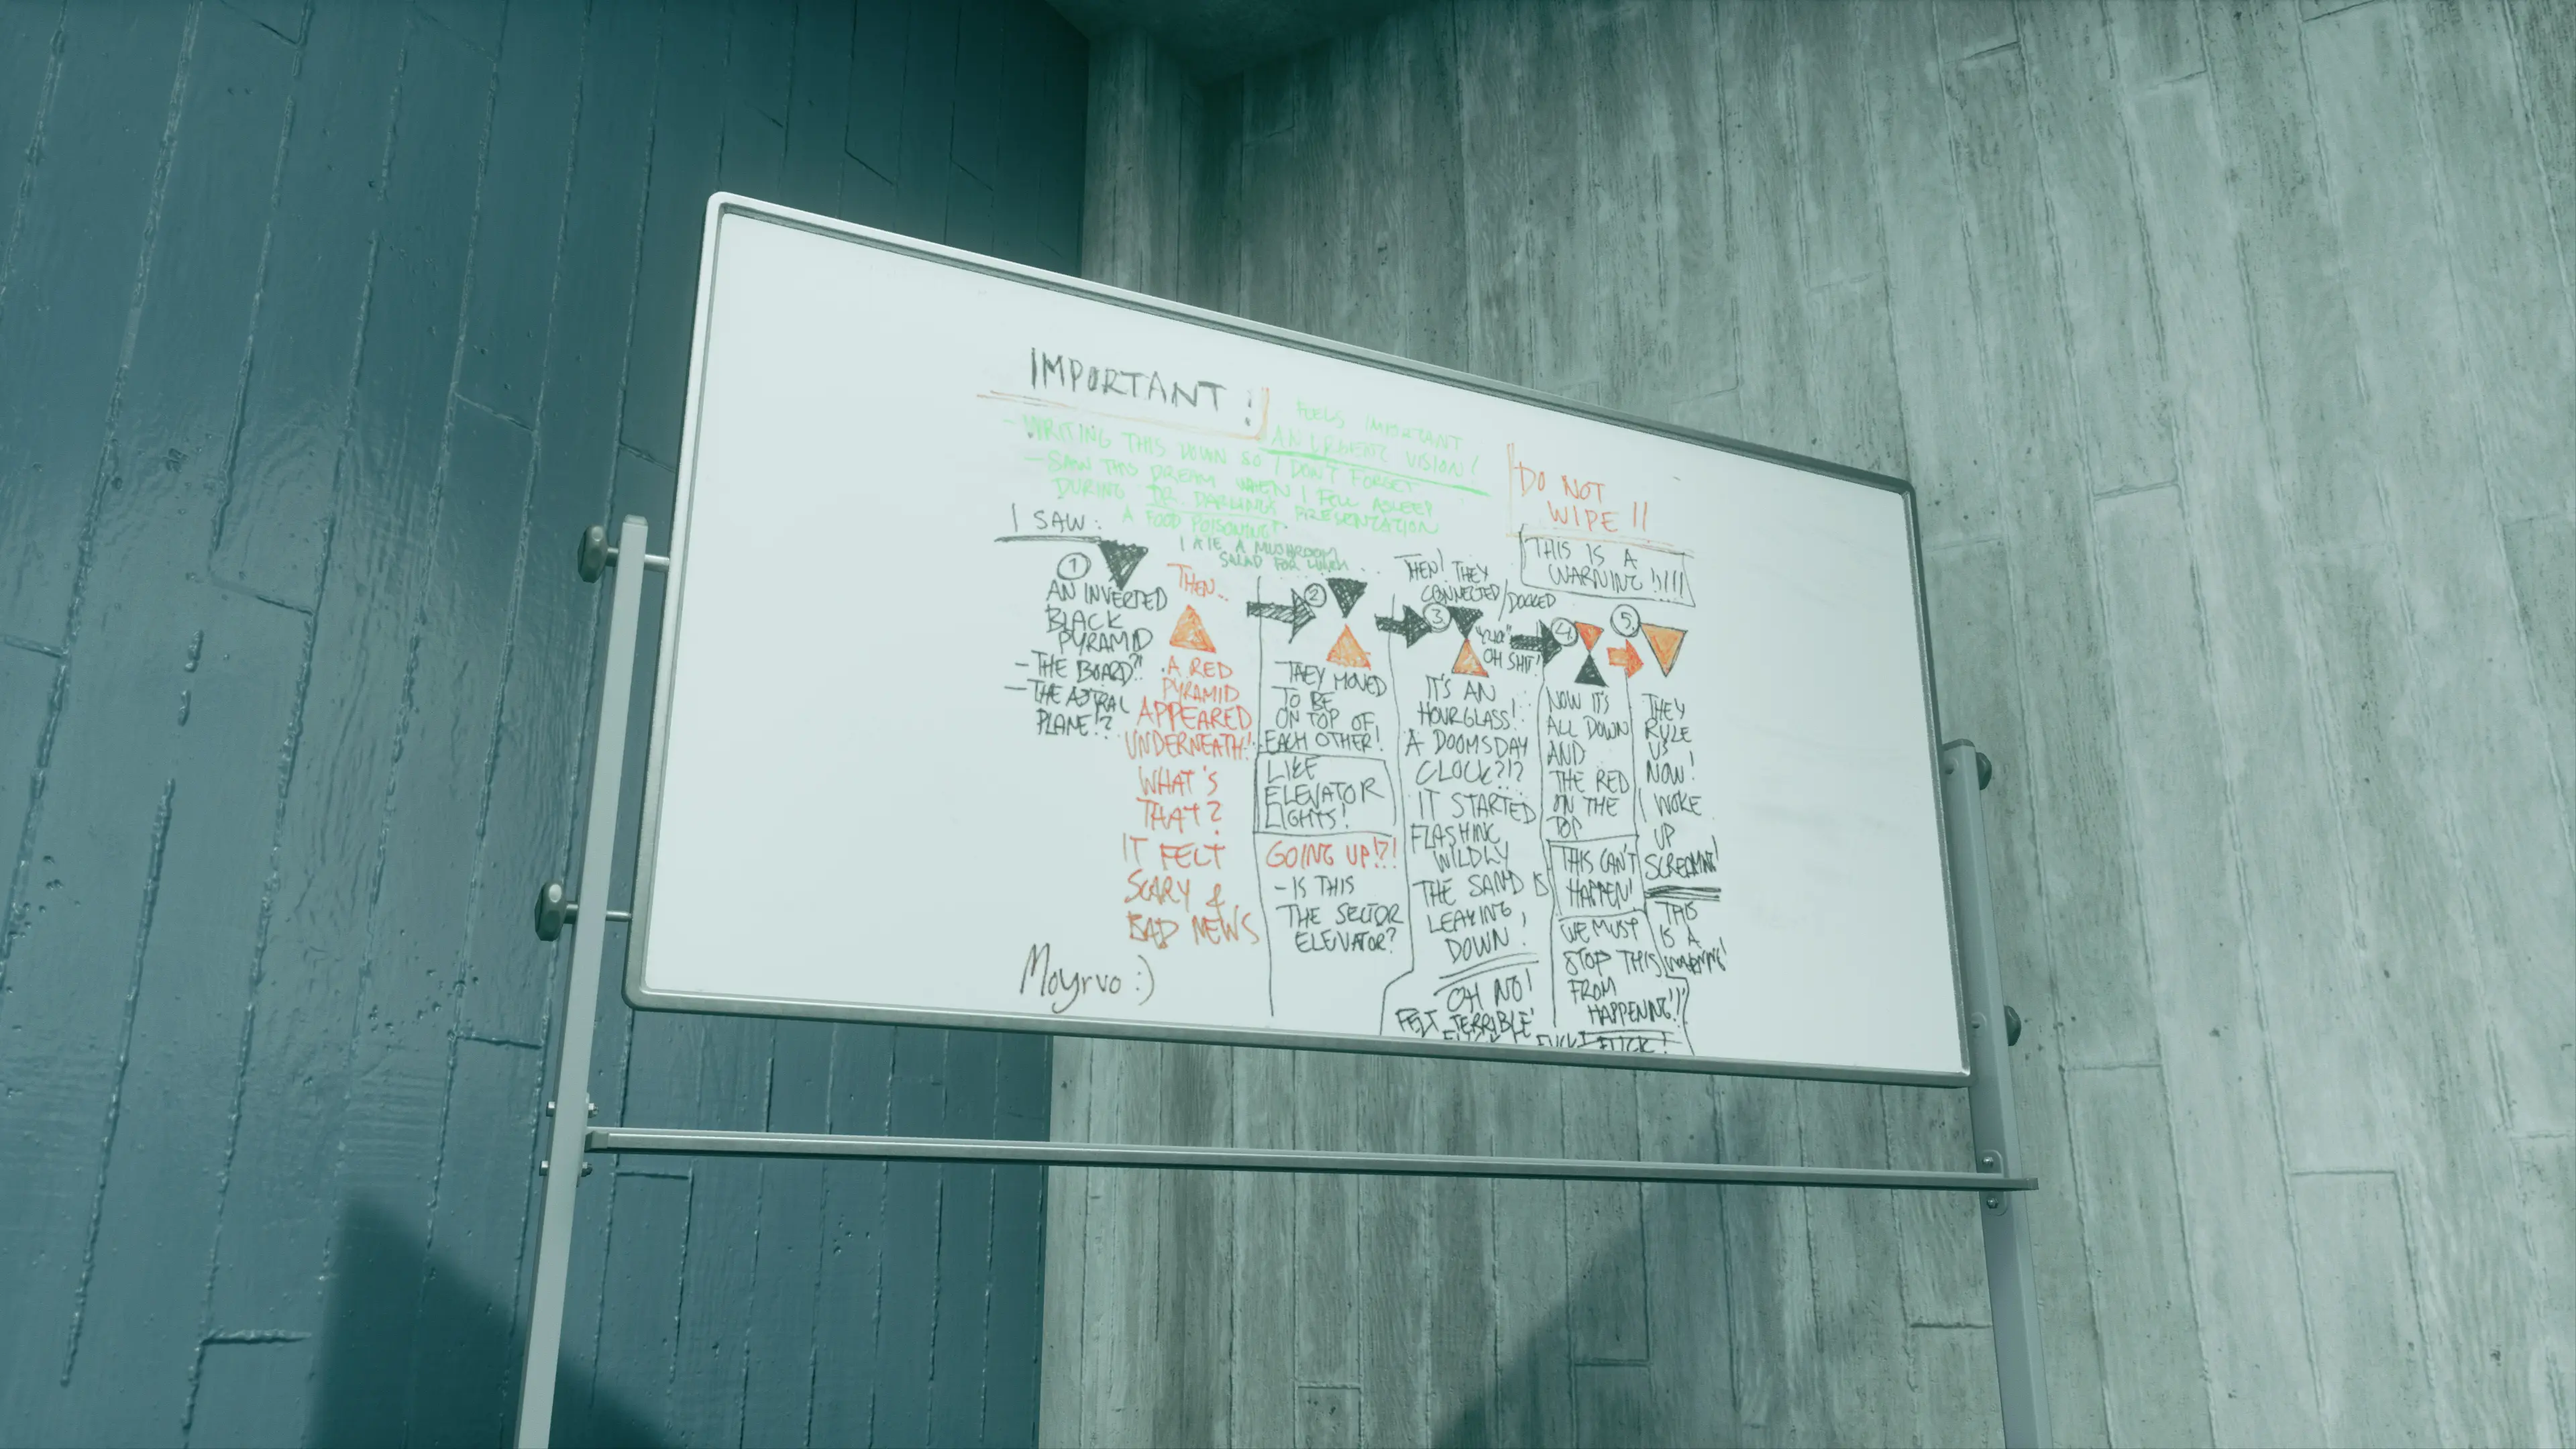 IMPORTANT!
FEELS IMPORTANT
AN URGENT VISION!
- WRITING THIS DOWN SO I DON'T FORGET
- SAW THIS DREAM WHEN I FELL ASLEEP
DURING DR. DARLING'S PRESENTATION
A FOOD POISONING?
I ATE A MUSHROOM
SALAD FOR LUNCH...
DO NOT
WIPE!!
THIS IS A
WARNING!!!!!
I SAW:
1
AN INVERTED
BLACK
PYRAMID
- THE BOARD?!
- THE ASTRAL
PLANE!?
THEN...
A RED
PYRAMID
APPEARED
UNDERNEATH!
WHAT'S
THAT?
IT FELT
SCARY &
BAD NEWS
2
THEY MOVED
TO BE
ON TOP OF
EACH OTHER!
LIKE
ELEVATOR
LIGHTS!
GOING UP!?!
- IS THIS
THE SECTOR
ELEVATOR?
THEN! THEY
CONNECTED/DOCKED
3
OH SHIT!
IT'S AN
HOURGLASS!
A DOOMSDAY
CLOCK?!?
IT STARTED
FLASHING
WILDLY
THE SAND IS
LEAKING,
DOWN!
OH NO!
FELT TERRIBLE!
4
NOW IT'S
ALL DOWN
AND
THE RED
ON THE
TOP
THIS CAN'T
HAPPEN!
WE MUST
STOP THIS
FROM
HAPPENING!!
FUCK!
5.
THEY
RULE
US
NOW!
I WOKE
UP
SCREAMING!
THIS
IS A
WARNING!
Moyrvo :)